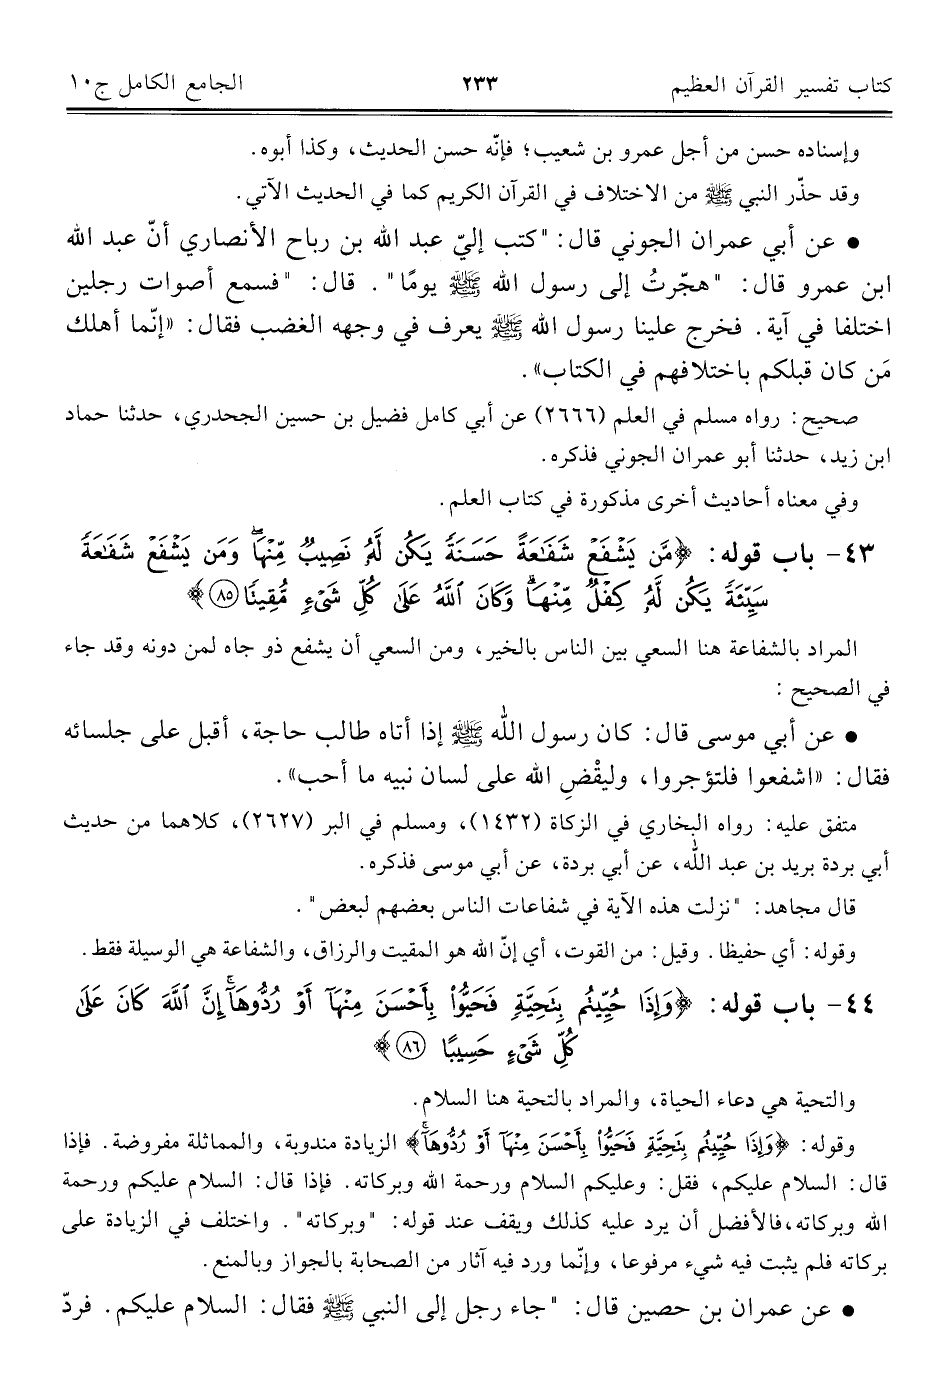 كتاب تفسير القرآن العظيم ٢٣٣ الجامع الكامل ج١٠
وإسناده حسن من أجل عمرو بن شعيب؛ فإنّه حسن الحديث، وكذا أبوه.
وقد حذّر النبي ﷺ من الاختلاف في القرآن الكريم كما في الحديث الآتي.
• عن أبي عمران الجوني قال: "كتب إليّ عبد الله بن رباح الأنصاري أنّ عبد الله
ابن عمرو قال: "هجّرتُ إلى رسول الله ﷺ يومًا". قال: "فسمع أصوات رجلين
اختلفا في آية. فخرج علينا رسول الله ﷺ يعرف في وجهه الغضب فقال: «إنّما أهلك
مَن كان قبلكم باختلافهم في الكتاب».
صحيح: رواه مسلم في العلم (٢٦٦٦) عن أبي كامل فضيل بن حسين الجحدري، حدثنا حماد
ابن زيد، حدثنا أبو عمران الجوني فذكره.
وفي معناه أحاديث أخرى مذكورة في كتاب العلم.
٤٣- باب قوله: ﴿مَّن يَشْفَعْ شَفَٰعَةً حَسَنَةً يَكُن لَّهُۥ نَصِيبٌ مِّنْهَاۖ وَمَن يَشْفَعْ شَفَٰعَةً
سَيِّئَةً يَكُن لَّهُۥ كِفْلٌ مِّنْهَاۗ وَكَانَ ٱللَّهُ عَلَىٰ كُلِّ شَىْءٍ مُّقِيتًا ٨٥﴾
المراد بالشفاعة هنا السعي بين الناس بالخير، ومن السعي أن يشفع ذو جاه لمن دونه وقد جاء
في الصحيح:
• عن أبي موسى قال: كان رسول الله ﷺ إذا أتاه طالب حاجة، أقبل على جلسائه
فقال: «اشفعوا فلتؤجروا، وليقْضِ الله على لسان نبيه ما أحب».
متفق عليه: رواه البخاري في الزكاة (١٤٣٢)، ومسلم في البر (٢٦٢٧)، كلاهما من حديث
أبي بردة بريد بن عبد الله، عن أبي بردة، عن أبي موسى فذكره.
قال مجاهد: "نزلت هذه الآية في شفاعات الناس بعضهم لبعض".
وقوله: أي حفيظا. وقيل: من القوت، أي إنّ الله هو المقيت والرزاق، والشفاعة هي الوسيلة فقط.
٤٤- باب قوله: ﴿وَإِذَا حُيِّيتُم بِتَحِيَّةٍ فَحَيُّوا۟ بِأَحْسَنَ مِنْهَآ أَوْ رُدُّوهَآۗ إِنَّ ٱللَّهَ كَانَ عَلَىٰ
كُلِّ شَىْءٍ حَسِيبًا ٨٦﴾
والتحية هي دعاء الحياة، والمراد بالتحية هنا السلام.
وقوله: ﴿وَإِذَا حُيِّيتُم بِتَحِيَّةٍ فَحَيُّوا۟ بِأَحْسَنَ مِنْهَآ أَوْ رُدُّوهَآۗ﴾ الزيادة مندوبة، والمماثلة مفروضة. فإذا
قال: السلام عليكم، فقل: وعليكم السلام ورحمة الله وبركاته. فإذا قال: السلام عليكم ورحمة
الله وبركاته،فالأفضل أن يرد عليه كذلك ويقف عند قوله: "وبركاته". واختلف في الزيادة على
بركاته فلم يثبت فيه شيء مرفوعا، وإنّما ورد فيه آثار من الصحابة بالجواز وبالمنع.
• عن عمران بن حصين قال: "جاء رجل إلى النبي ﷺ فقال: السلام عليكم. فردّ